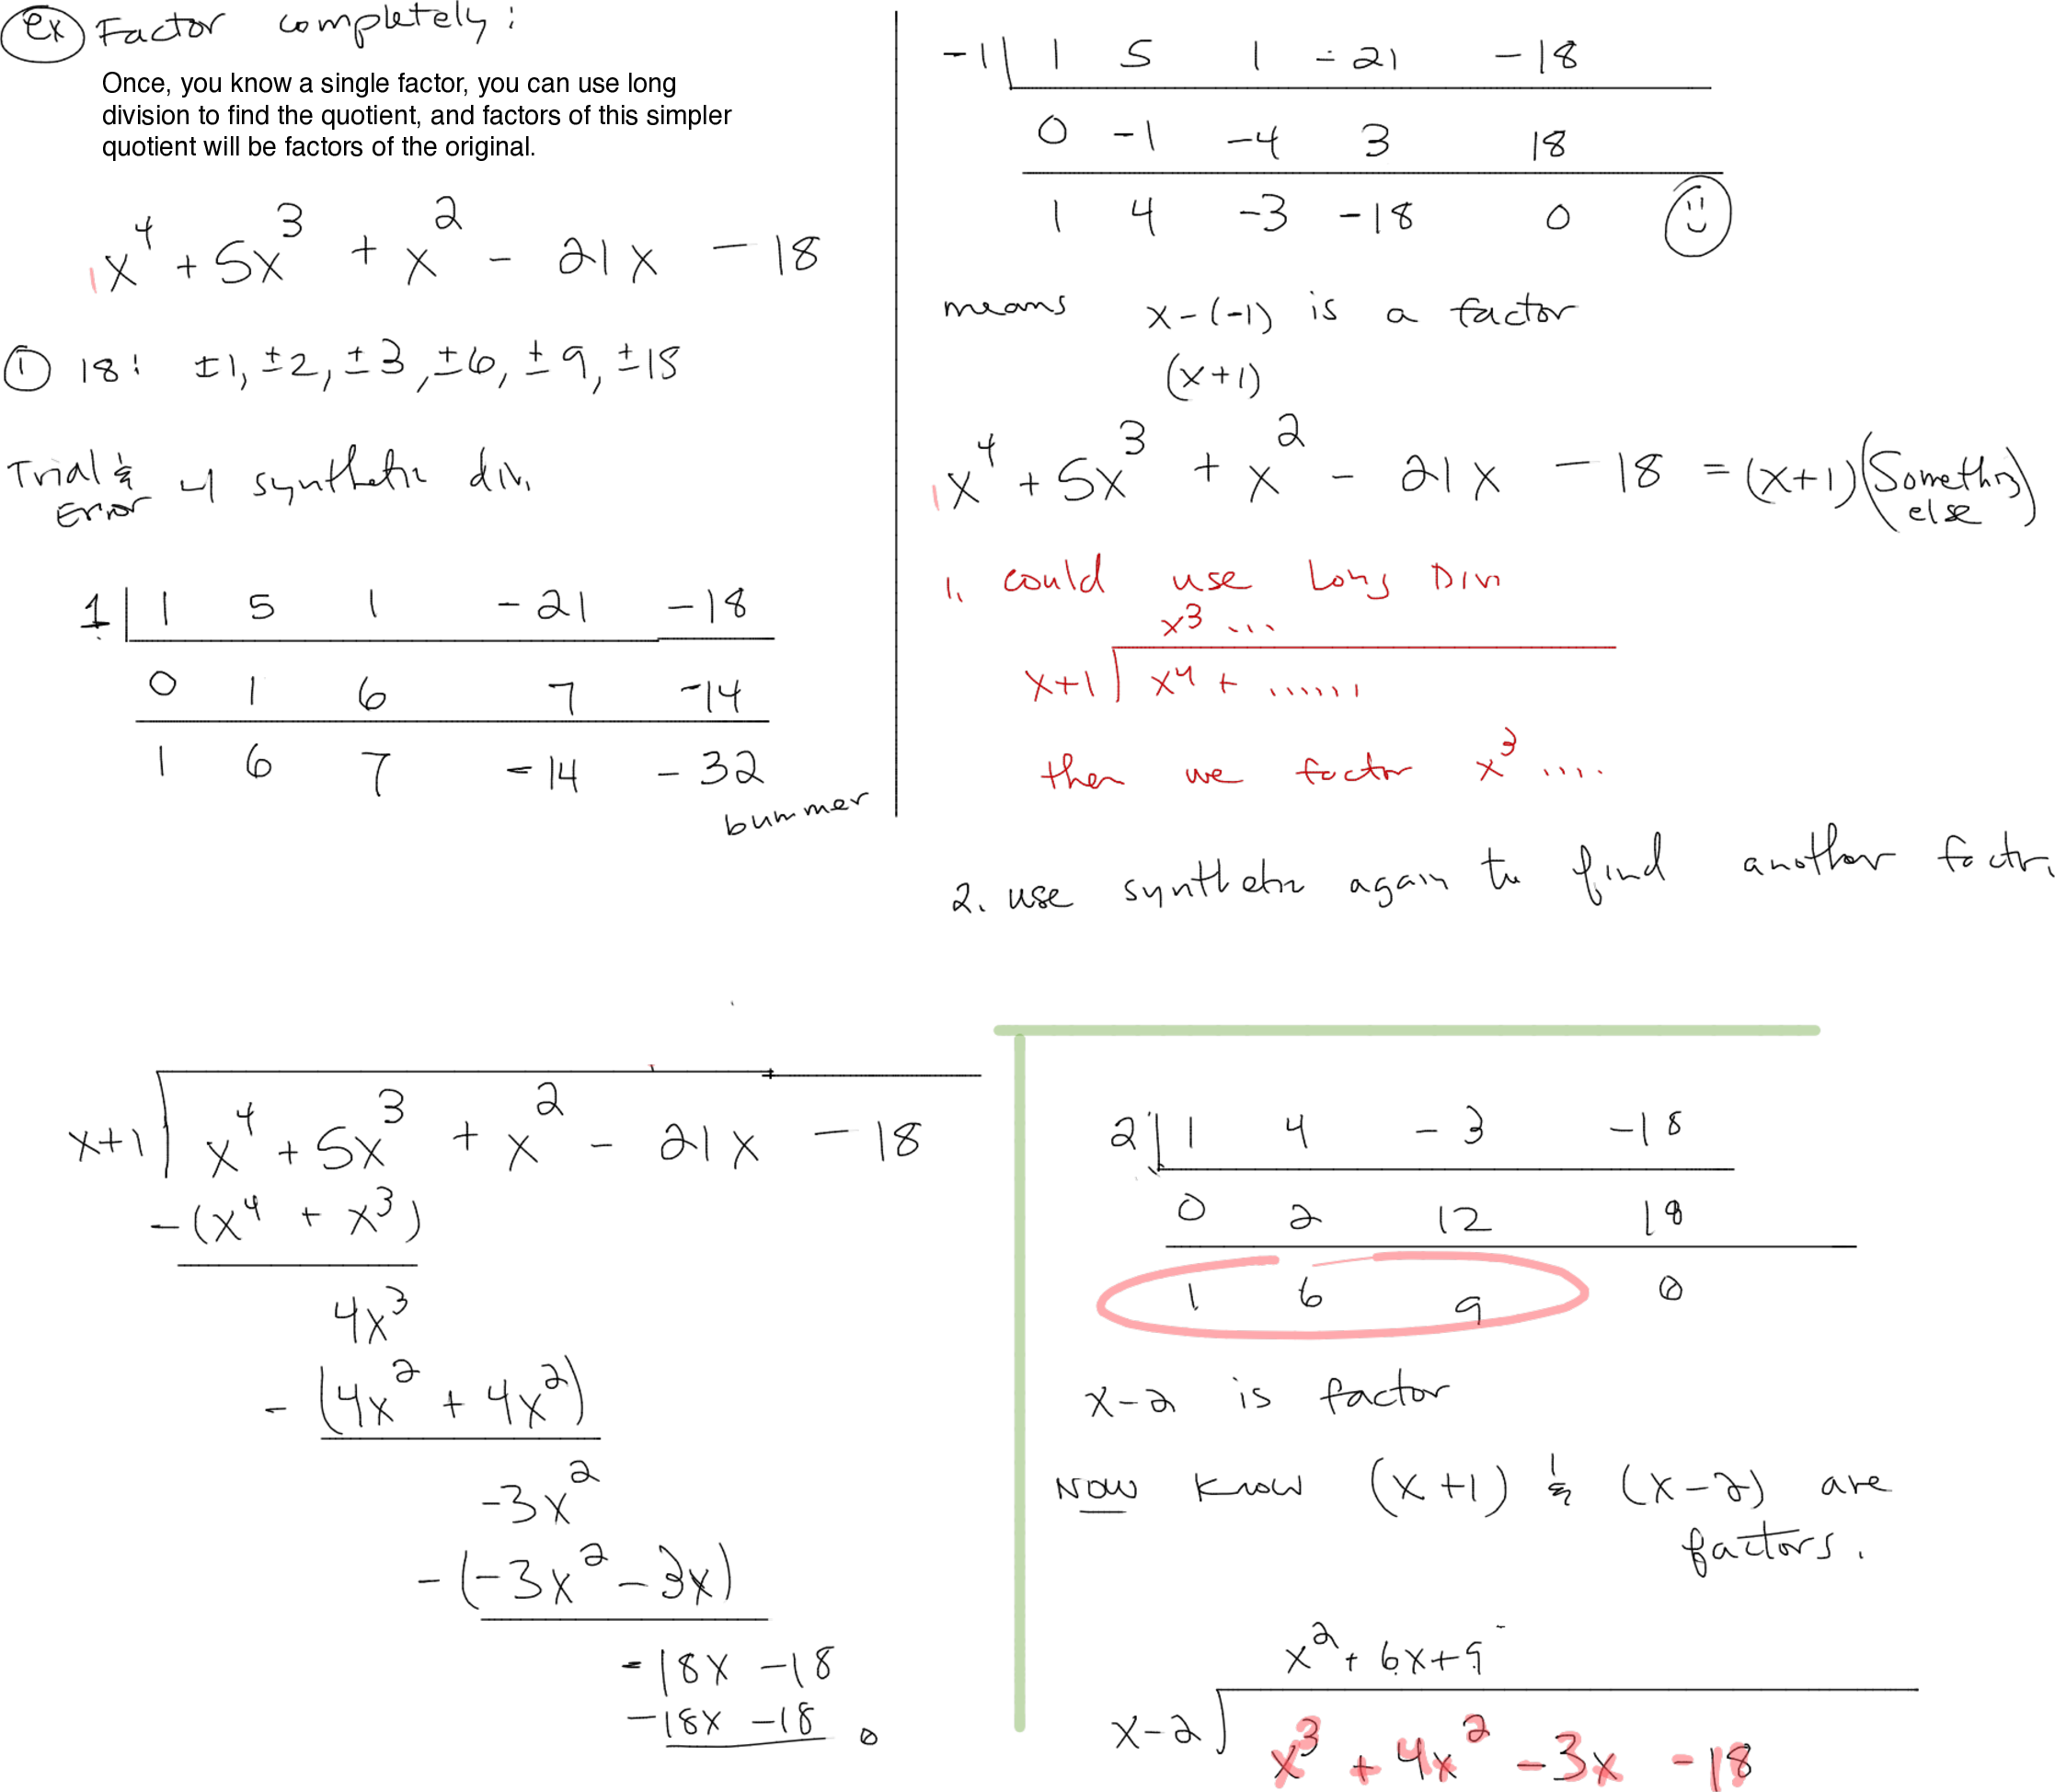 ex Factor completely:
Once, you know a single factor, you can use long
division to find the quotient, and factors of this simpler
quotient will be factors of the original.
1x⁴ + 5x³ + x² - 21x - 18
① 18: ±1, ±2, ±3, ±6, ±9, ±18
Trial &
Error w/ synthetic div.
1 | 1 5 1 -21 -18
0 1 6 7 -14
1 6 7 -14 -32
bummer
-1 | 1 5 1 -21 -18
0 -1 -4 3 18
1 4 -3 -18 0
means x-(-1) is a factor
(x+1)
1x⁴ + 5x³ + x² - 21x - 18 = (x+1)(Something
else)
1. could use Long Div
x³ ...
x+1 | x⁴ + ......
then we factor x³ ....
2. use synthetic again to find another factr.
x+1 | x⁴ + 5x³ + x² - 21x - 18
-(x⁴ + x³)
4x³
-(4x² + 4x²)
-3x²
-(-3x² - 3x)
-18x - 18
-18x - 18 0
2 | 1 4 -3 -18
0 2 12 18
1 6 9 0
x-2 is factor
Now know (x+1) & (x-2) are
factors.
x² + 6x + 9
x-2 | x³ + 4x² - 3x - 18